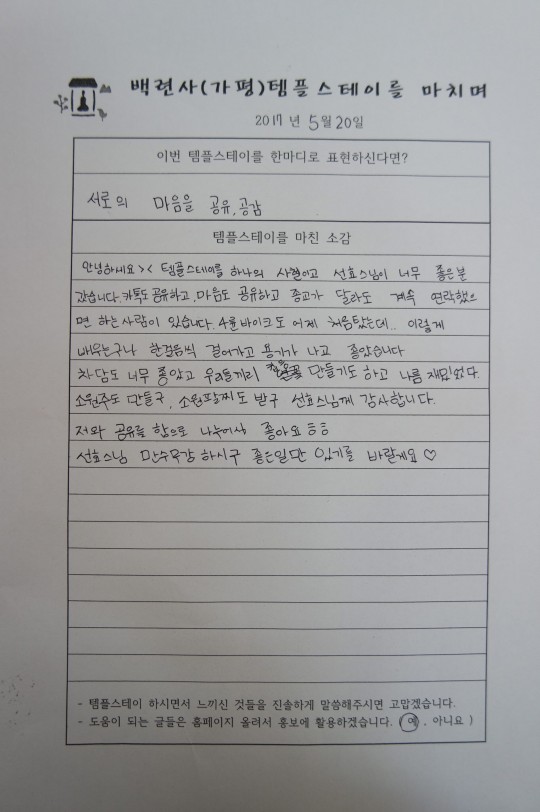 백련사(가평)템플스테이를 마치며
2017 년 5월 20일
이번 템플스테이를 한마디로 표현하신다면?
서로의 마음을 공유, 공감
템플스테이를 마친 소감
안녕하세요>< 템플스테이를 하나의 사찰이고 선효스님이 너무 좋은분
같습니다. 카톡도 공유하고, 마음도 공유하고 종교가 달라도 계속 연락했으
면 하는 사람이 있습니다. 4륜바이크도 어제 처음탔는데.. 이렇게
배우는구나 한걸음씩 걸어가고 용기가 나고 좋았습니다
차담도 너무 좋았고 우리들끼리 만들기도 하고 나름 재밌었다.
소원주도 만들구, 소원팔찌도 받구 선효스님께 감사합니다.
저와 공유를 함으로 나누어서 좋아요 ㅎㅎ
선효스님 만수무강 하시구 좋은일만 있기를 바랄게요 ♡
- 템플스테이 하시면서 느끼신 것들을 진솔하게 말씀해주시면 고맙겠습니다.
- 도움이 되는 글들은 홈페이지 올려서 홍보에 활용하겠습니다. ( 예 , 아니요 )